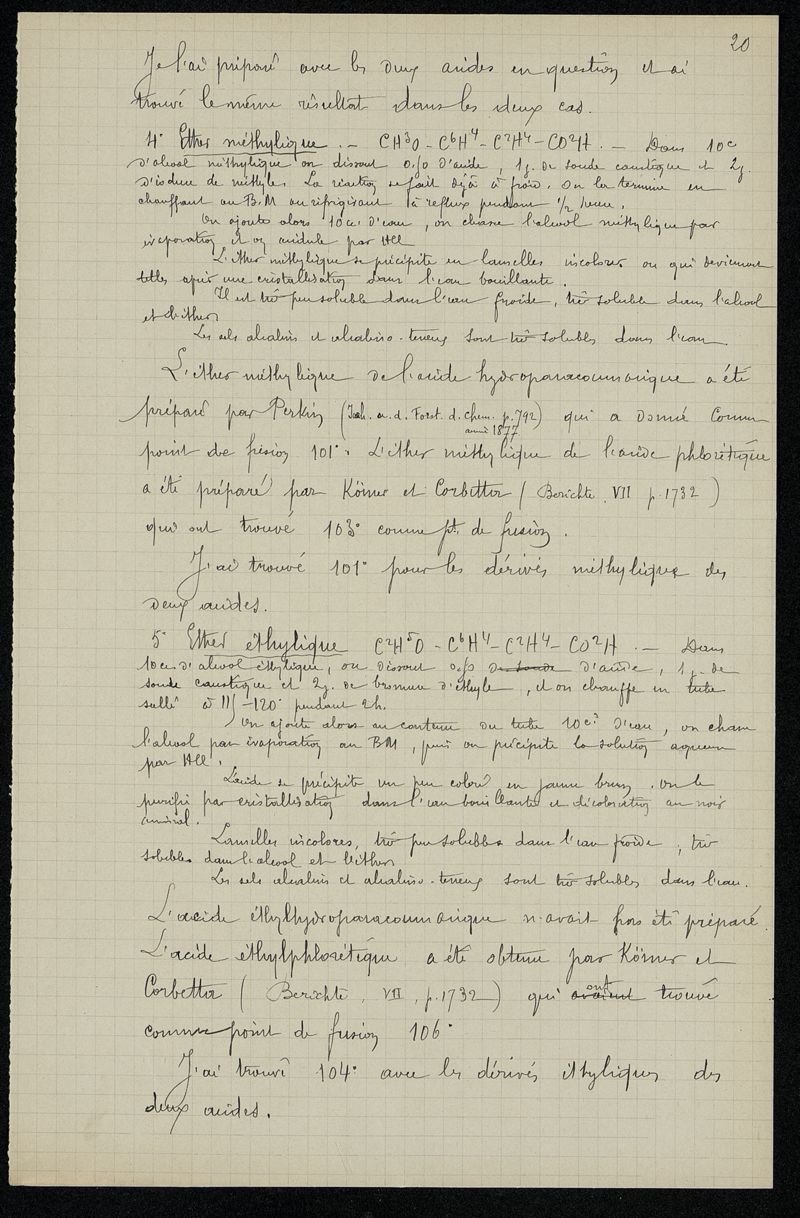 20
Je l'ai préparé avec les deux acides en question et ai
trouvé le même résultat dans les deux cas.
4° Ether méthylique. — CH³O - C⁶H⁴ - C²H⁴ - CO²H. — Dans 10cc
d'alcool méthylique on dissout 0,50 d'acide, 1g. de soude caustique et 2g.
d'iodure de méthyle. La réaction se fait déjà à froid. On la termine en
chauffant au B.M au réfrigérant à reflux pendant 1/2 heure.
On ajoute alors 10cc. d'eau, on chasse l'alcool méthylique par
évaporation et on acidule par HCl
L'éther méthylique se précipite en lamelles incolores ou qui deviennent
telles après une cristallisation dans l'eau bouillante.
Il est très peu soluble dans l'eau froide, très soluble dans l'alcool
et l'éther
Les sels alcalins et alcalino-terreux sont très solubles dans l'eau.
L'éther méthylique de l'acide hydroparacoumarique a été
préparé par Perkin (Jah. u. d. Forst. d. Chem. p. 792) qui a donné comme
année 1877
point de fusion 101°. L'éther méthylique de l'acide phlorétique
a été préparé par Körner et Corbetta (Berichte, VII p. 1732)
qui ont trouvé 103° comme pt. de fusion.
J'ai trouvé 101° pour les dérivés méthyliques des
deux acides.
5° Ether éthylique C²H⁵O - C⁶H⁴ - C²H⁴ - CO²H. — Dans
10cc. d'alcool éthylique, on dissout 0,50 de soude d'acide, 1g. de
soude caustique et 2g. de bromure d'éthyle, et on chauffe en tube
scellé à 115-120° pendant 2h.
On ajoute alors au contenu du tube 10cc d'eau, on chasse
l'alcool par évaporation au BM, puis on précipite la solution aqueuse
par HCl.
L'acide se précipite un peu coloré en jaune brun. On le
purifie par cristallisation dans l'eau bouillante et décoloration au noir
animal.
Lamelles incolores, très peu solubles dans l'eau froide, très
solubles dans l'alcool et l'éther
Les sels alcalins et alcalino-terreux sont très solubles dans l'eau.
L'acide éthylhydroparacoumarique n'avait pas été préparé.
L'acide éthylphlorétique a été obtenu par Körner et
Corbetta (Berichte, VII, p. 1732) qui avaient ont trouvé
comme point de fusion 106°
J'ai trouvé 104° avec les dérivés éthyliques des
deux acides.